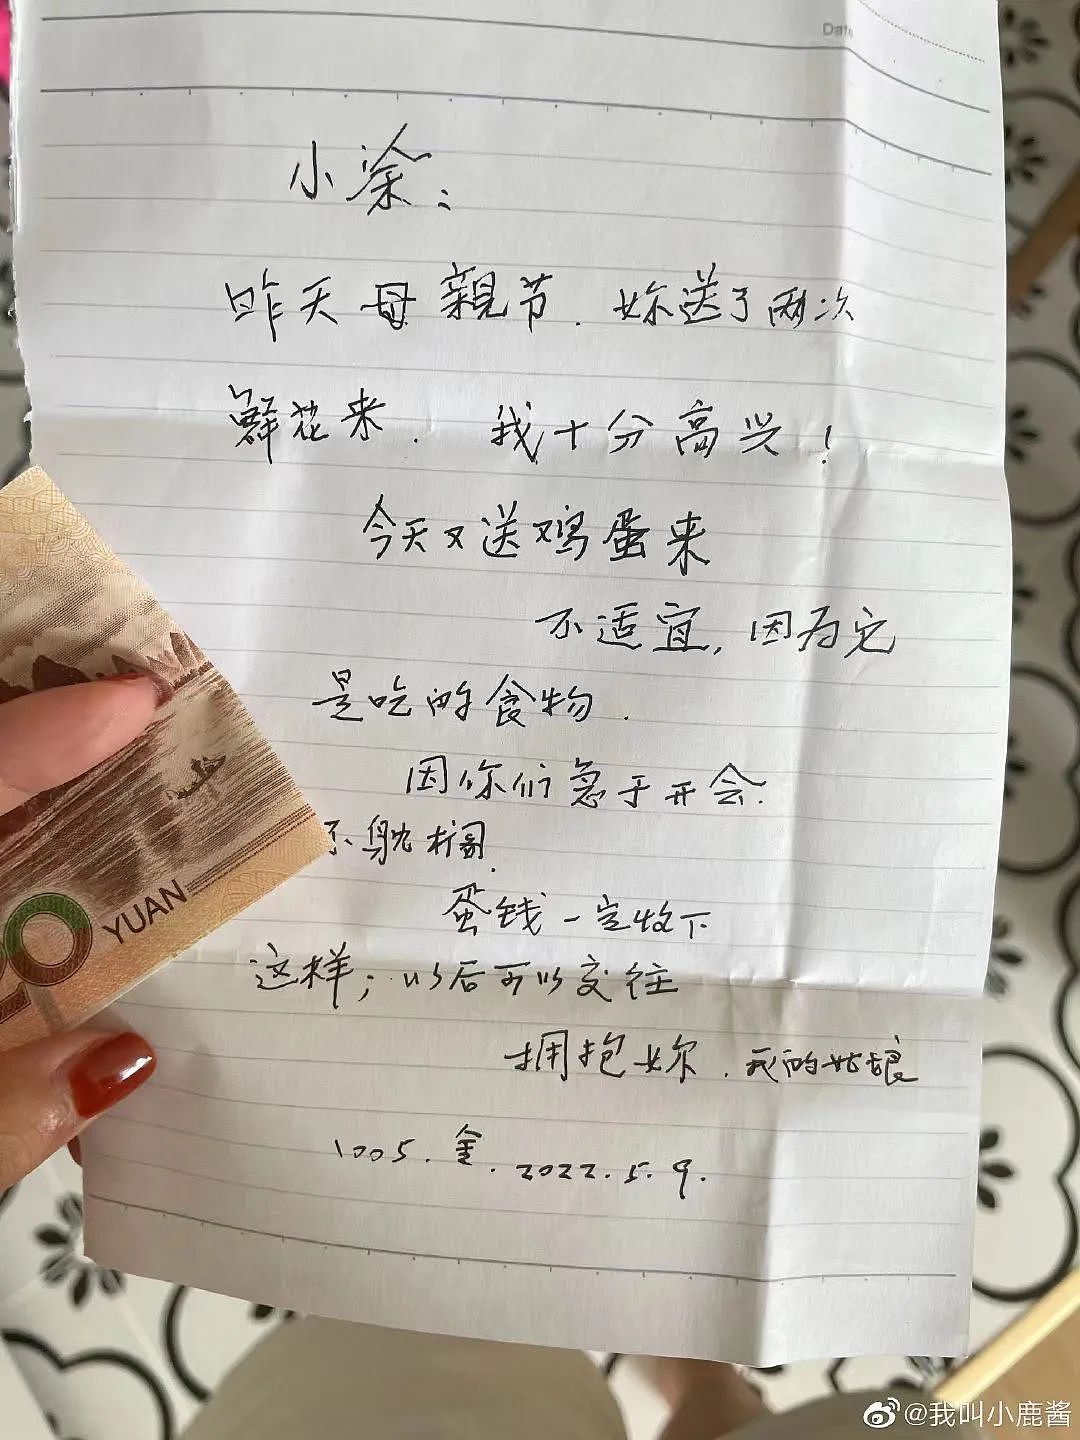 Date
小涂：
昨天母親节．妳送了两次
鲜花来．我十分高兴！
今天又送鸡蛋来
不适宜，因为它
是吃的食物．
因你们急于开会．
不躭搁．
蛋钱一定收下
这样；以后可以交往
拥抱妳．我的姑娘
1005．金．2022.5.9.
20 YUAN
@我叫小鹿酱